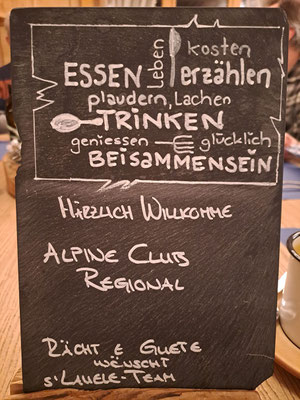 Leben kosten
ESSEN erzählen
plaudern, Lachen
TRINKEN
geniessen glücklich
BEISAMMENSEIN
HÄRZLICH WILLKOMME
ALPINE CLUB
REGIONAL
RÄCHT E GUETE
WÜNSCHT
S'LAUELE-TEAM